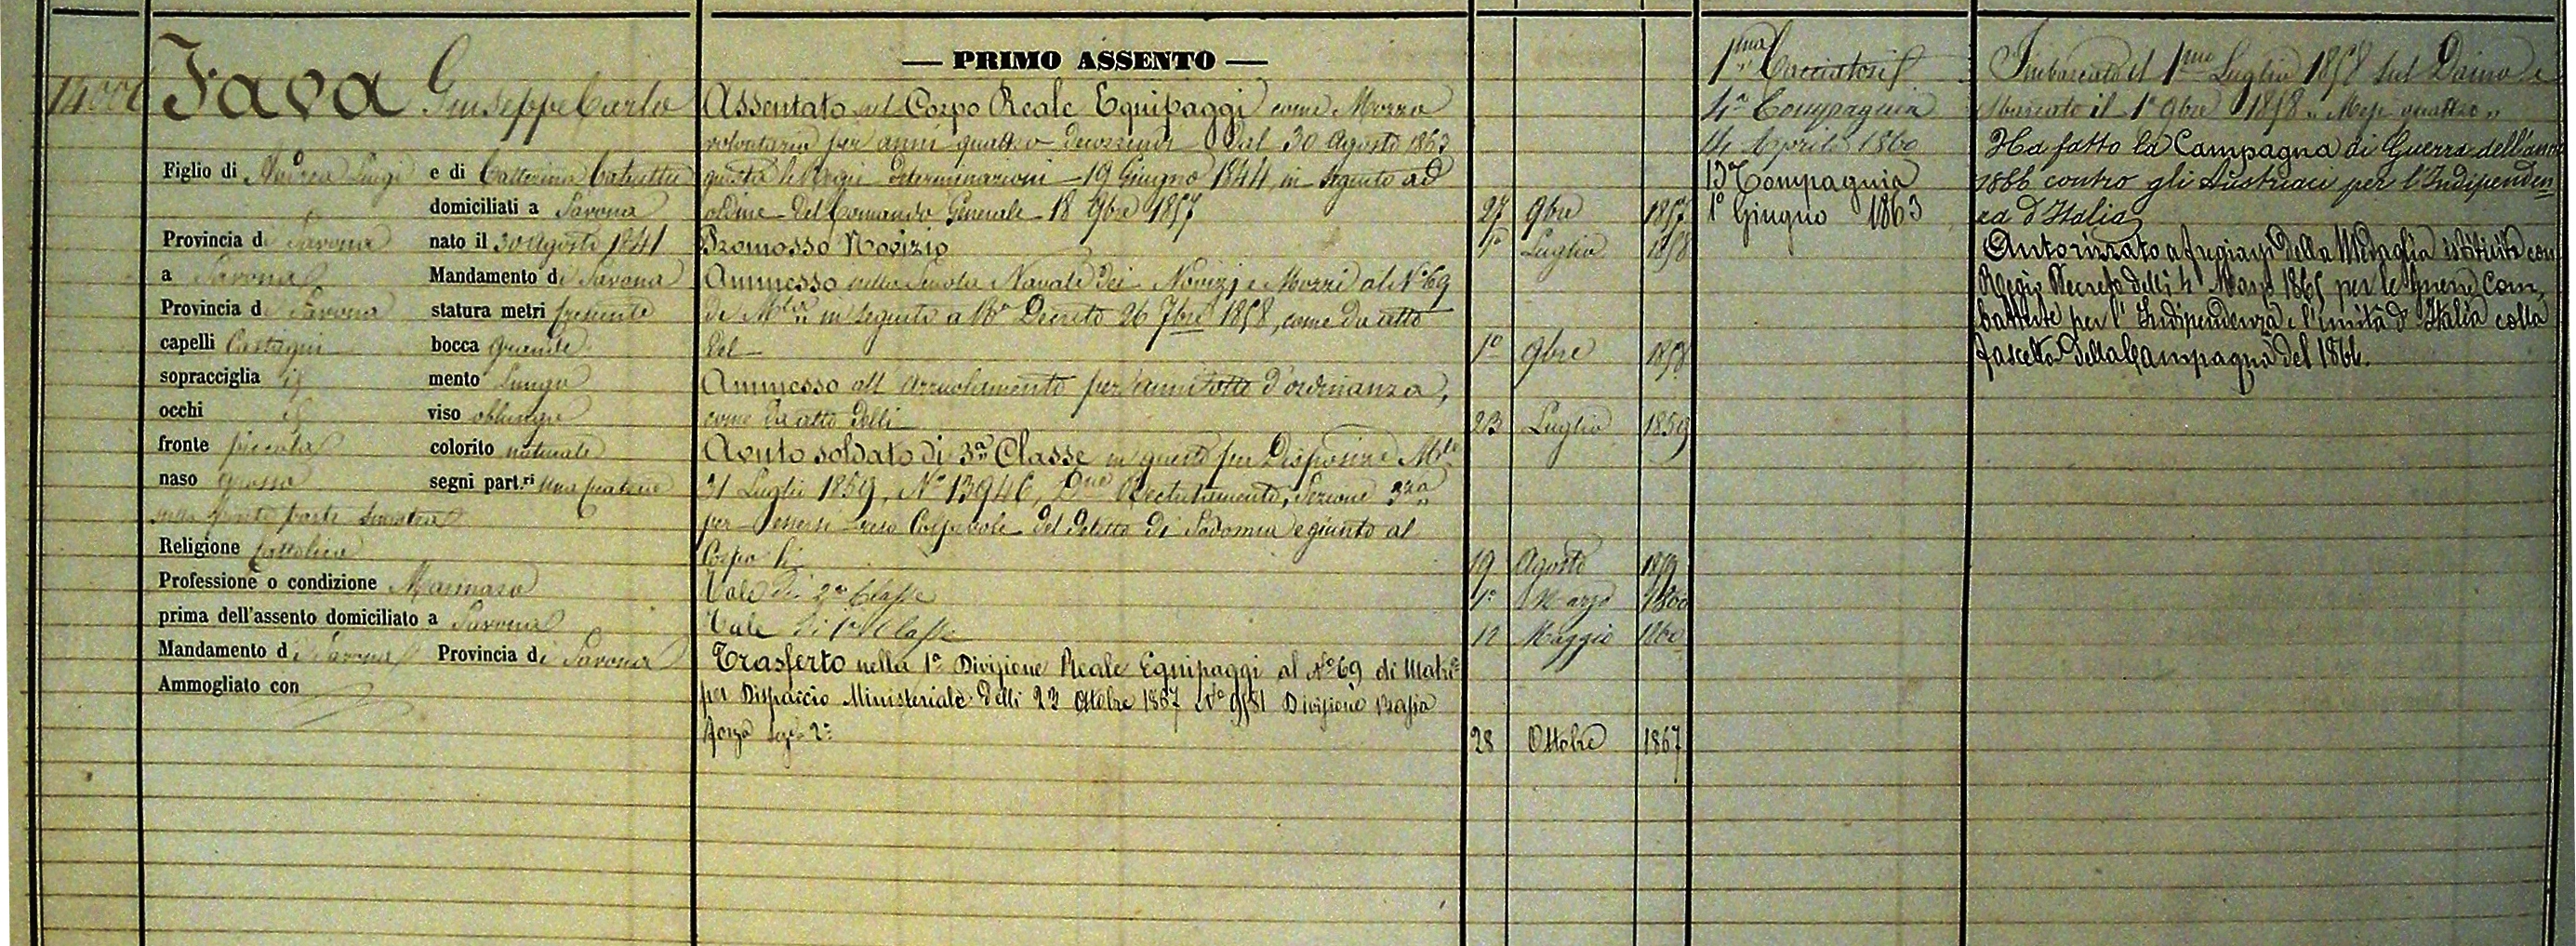 Fava Giuseppe Carlo
Figlio di Andrea Luigi e di Catterina
domiciliati a Savona
Provincia di Savona nato il 30 Agosto 1841
a Savona Mandamento di Savona
Provincia di Savona statura metri
capelli Castagni bocca grande
sopracciglia id mento lungo
occhi id viso oblungo
fronte piccola colorito naturale
naso grosso segni part.ri una
sulla fronte parte sinistra
Religione Cattolica
Professione o condizione Marinaro
prima dell'assento domiciliato a Savona
Mandamento di Savona Provincia di Savona
Ammogliato con
— PRIMO ASSENTO —
Assentato nel Corpo Reale Equipaggi come Mozzo
volontario per anni quattro decorrendi Dal 30 Agosto 1863
giusta le Regie determinazioni 19 Giugno 1844, in seguito ad
ordine del Comando Generale 18 9bre 1857 27 9bre 1857
Promosso Novizio 1° Luglio 1858
Ammesso nella Scuola Navale dei Novizj e Mozzi al N° 69
di Mla in seguito a Ro Decreto 26 7bre 1858, come da atto
del 1° 9bre 1858
Ammesso all'arruolamento per anni otto d'ordinanza,
come da atto delli 23 Luglio 1859
Avuto soldato di 3a Classe in questo per Disposizne Mle
31 Luglio 1859, N° 13946, Dne Reclutamento, Sezione 3za
per essersi reso Colpevole del delitto di Sodomia e giunto al
Corpo li 19 Agosto 1859
Tale di 2a Classe 1° Marzo 1860
Tale di 1a Classe 12 Maggio 1860
Trasferto nella 1a Divisione Reale Equipaggi al N° 69 di Matrla
per Dispaccio Ministeriale delli 23 Ottobre 1867 N° 9581 Divisione Bassa
forza Sezne 2a 28 Ottobre 1867
1ma Cacciatori
4a Compagnia
14 Aprile 1860
13a Compagnia
1° Giugno 1863
Imbarcato il 1mo Luglio 1858 sul Daino e
sbarcato il 1° 9bre 1858 „ Mesi quattro „
Ha fatto la Campagna di Guerra dell'anno
1866 contro gli Austriaci per l'Indipenden
za d'Italia
Autorizzato a fregiarsi della Medaglia istituita con
Regio Decreto delli 4 Marzo 1865 per le Guerre Com,
battute per l'Indipendenza e l'unità d'Italia colla
fascetta della Campagna del 1866.